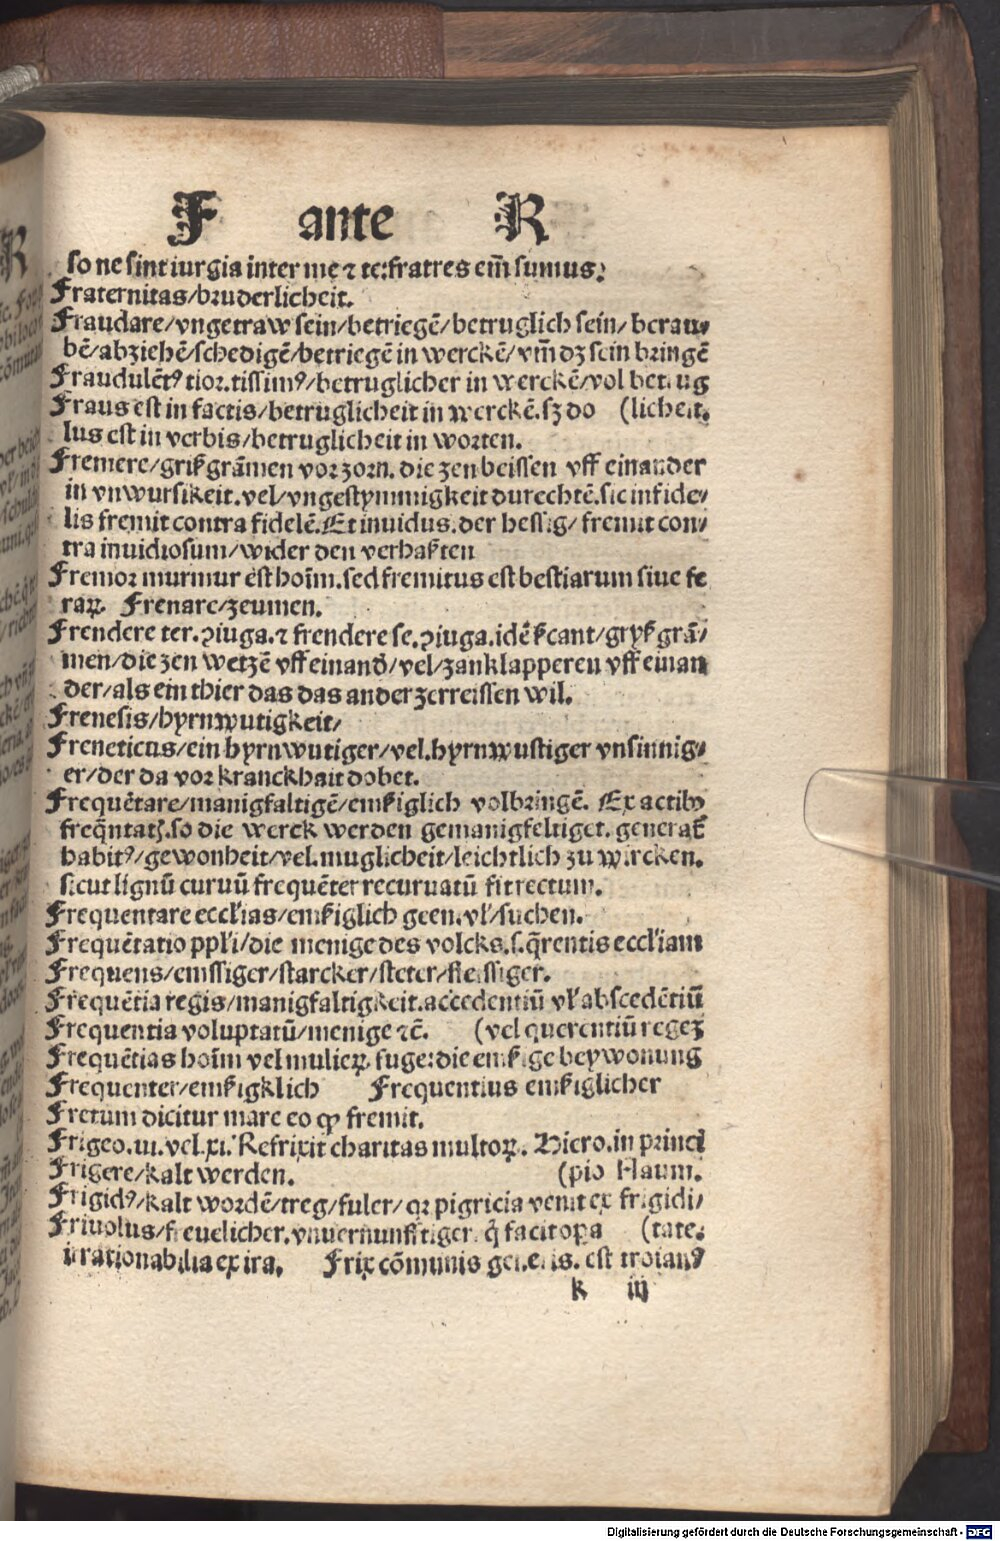 F ante R
so ne sint iurgia inter me ⁊ te: fratres em̄ sumus.
Fraternitas/bruderlicheit.
Fraudare/vngetraw sein/betriegē/betruglich sein/ berau⸗
bē/abziehē/schedigē/betriegē in werckē/vm̄ dz sein bringē
Fraudulētꝰ tior.tissimꝰ/betruglicher in werckē/vol betrug
Fraus est in factis/betruglicheit in werckē.sz do (licheit.
lus est in verbis/betruglicheit in worten.
Fremere/griſzgrāmen vor zorn. die zen beissen vff einander
in vnwursikeit.vel/vngestymmigkeit durechtē.sic infide/
lis fremit contra fidelē.Et inuidus.der hessig/ fremit con/
tra inuidiosum/wider den verhaſzten
Fremor murmur est hoīm.sed fremitus est bestiarum siue fe
raꝝ. Frenare/zeumen.
Frendere ter.ꝯiuga.⁊ frendere se.ꝯiuga.idē ſcant/gryſzgrā/
men/die zen wetzē vff einand̄/vel/zanklapperen vff einan
der/als ein thier das das ander zerreissen wil.
Frenesis/hyrnwutigkeit/
Freneticus/ein hyrnwutiger/vel.hyrnwustiger vnsinnig⸗
er/der da vor kranckhait dobet.
Frequētare/manigfaltigē/emſziglich volbringē. Ex actibꝰ
freq̄ntatꝭ.so die werck werden gemanigfeltiget. generat̄
habitꝰ/gewonheit/vel.muglicheit/leichtlich zu wircken.
sicut lignū curuū frequēter recuruatū fit rectum.
Frequentare eccl'ias/emſziglich geen.vl'/suchen.
Frequētatio ppl'i/die menige des volcks.s.q̄rentis eccl'iam
Frequens/emssiger/starcker/steter/fleissiger.
Frequētia regis/manigfaltigkeit.accedentiū vl' abscedētiū
Frequentia voluptatū/menige ⁊ē. (vel querentiū regez
Frequētias hoīm vel mulieꝝ fuge: die emſzige beywonung
Frequenter/emſzigklich Frequentius emſziglicher
Fretum dicitur mare eo ꝙ fremit.
Frigeo.ui.vel.xi. Refrixit charitas multoꝝ. Hiero.in princi
Frigere/kalt werden. (pio Naum.
Frigidꝰ/kalt wordē/treg/fuler/ qꝛ pigricia venit ex frigidi/
Friuolus/freuelicher.vnuernunfftiger. q̄ facit oꝑa (tate.
irrationabilia ex ira. Frix cōmunis generis. est troianꝰ
k iij
Digitalisierung gefördert durch die Deutsche Forschungsgemeinschaft - DFG